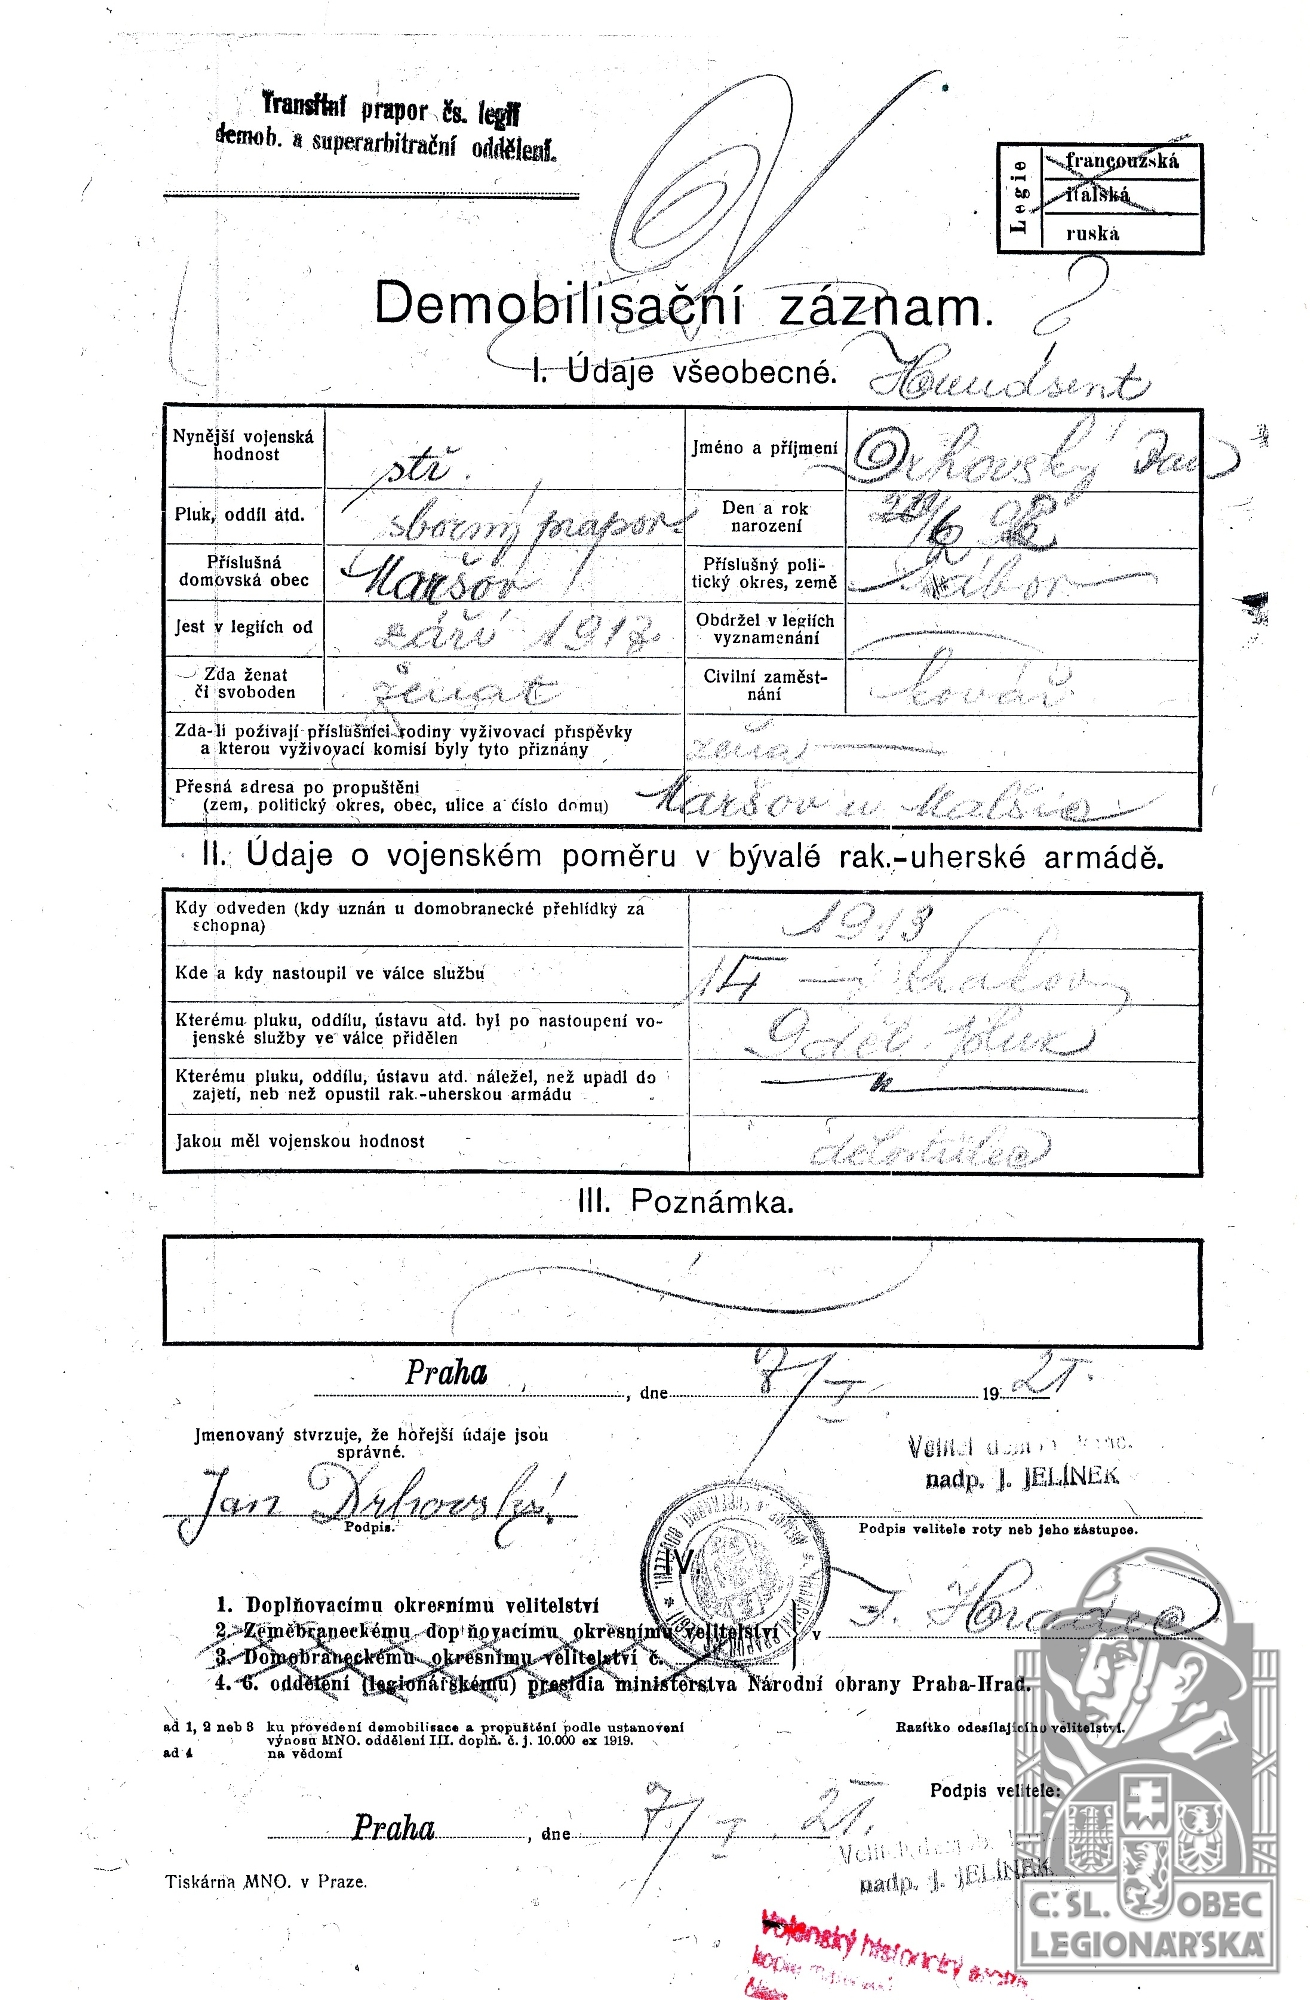 Transitní prapor čs. legií
demob. a superarbitrační oddělení.
Legie
francouzská
italská
ruská
Demobilisační záznam.
I. Údaje všeobecné.
Nynější vojenská hodnost
stř.
Jméno a příjmení
Drhovský Jan
Pluk, oddíl atd.
sborný prapor
Den a rok narození
Příslušná domovská obec
Maršov
Příslušný politický okres, země
Tábor
Jest v legiích od
září 1917
Obdržel v legiích vyznamenání
Zda ženat či svoboden
ženat
Civilní zaměstnání
kovář
Zda-li požívají příslušníci rodiny vyživovací příspěvky
a kterou vyživovací komisí byly tyto přiznány
žena
Přesná adresa po propuštění
(zem, politický okres, obec, ulice a číslo domu)
Maršov u Malšic
II. Údaje o vojenském poměru v bývalé rak.-uherské armádě.
Kdy odveden (kdy uznán u domobranecké přehlídky za
schopna)
1913
Kde a kdy nastoupil ve válce službu
14 — Krakov
Kterému pluku, oddílu, ústavu atd. byl po nastoupení vo-
jenské služby ve válce přidělen
9 děl. pluk
Kterému pluku, oddílu, ústavu atd. náležel, než upadl do
zajetí, neb než opustil rak.-uherskou armádu
Jakou měl vojenskou hodnost
dělostřelec
III. Poznámka.
Praha, dne 7/I. 1921.
Jmenovaný stvrzuje, že hořejší údaje jsou
správné.
nadp. J. JELÍNEK
Jan Drhovský
Podpis.
Podpis velitele roty neb jeho zástupce.
IV.
1. Doplňovacímu okresnímu velitelství
2. Zeměbraneckému doplňovacímu okresnímu velitelství
v J. Hradec
3. Domobraneckému okresnímu velitelství č.
4. 6. oddělení (legionářskému) presidia ministerstva Národní obrany Praha-Hrad.
ad 1, 2 neb 3 ku provedení demobilisace a propuštění podle ustanovení
výnosu MNO. oddělení III. doplň. č. j. 10.000 ex 1919.
ad 4 na vědomí
Razítko odesílajícího velitelství.
Podpis velitele:
Praha, dne 7/I. 21.
nadp. J. JELÍNEK
Tiskárna MNO. v Praze.
Vojenský historický
Č. SL. OBEC
LEGIONÁŘSKÁ